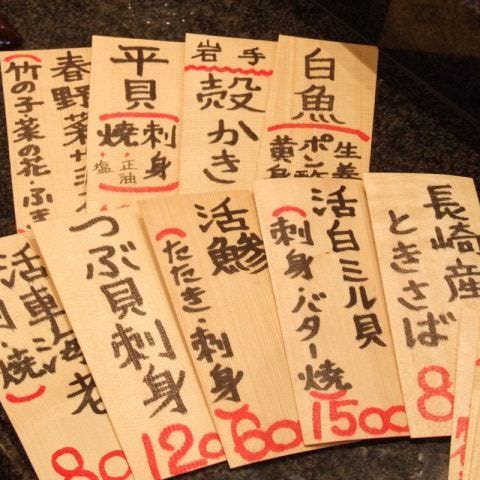 春野菜サラ
(竹の子・菜の花・ふき
平貝
刺身
焼
塩・正油
岩手
殻かき
白魚
生姜
ポン酢
黄身
活車海老
・焼
80
つぶ貝刺身
120
活鯵
(たたき・刺身)
600
活白ミル貝
(刺身・バター焼)
1500
長崎産
ときさば
8